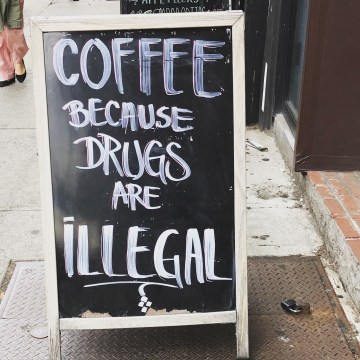 COFFEE
BECAUSE
DRUGS
ARE
iLLEGAL